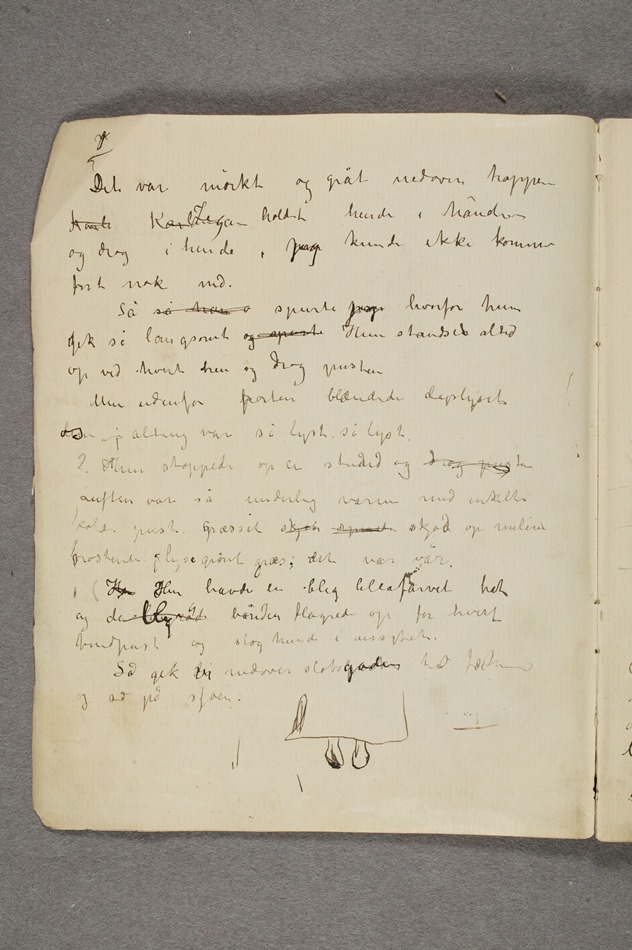 Det var mörkt og gråt nedover trappen
holdt hende i hånden
og drog i hende, jeg kunde ikke komme
fort nok ned.
Så så han o spurte jeg hvorfor hun
gik så langsomt og spurte Hun standset altid
op ved hvert trin og drog pusten
Men udenfor porten blændede dagslyset
alting var så lyst så lyst.
2. Hun stoppede op en stund og drog pusten
Luften var så underlig varm med enkelte
kolde pust. Græsset skjøt spirede skjød op mellem
brostenene lysegrønt græs; det var vår.
1 ( Hun Hun havde en bleg lillafarvet hat
og de blegröde båndene flagrede op for hvert
vindpust og slog hende i ansigtet.
Så gik vi nedover slotsgaden
og så på sjøen.